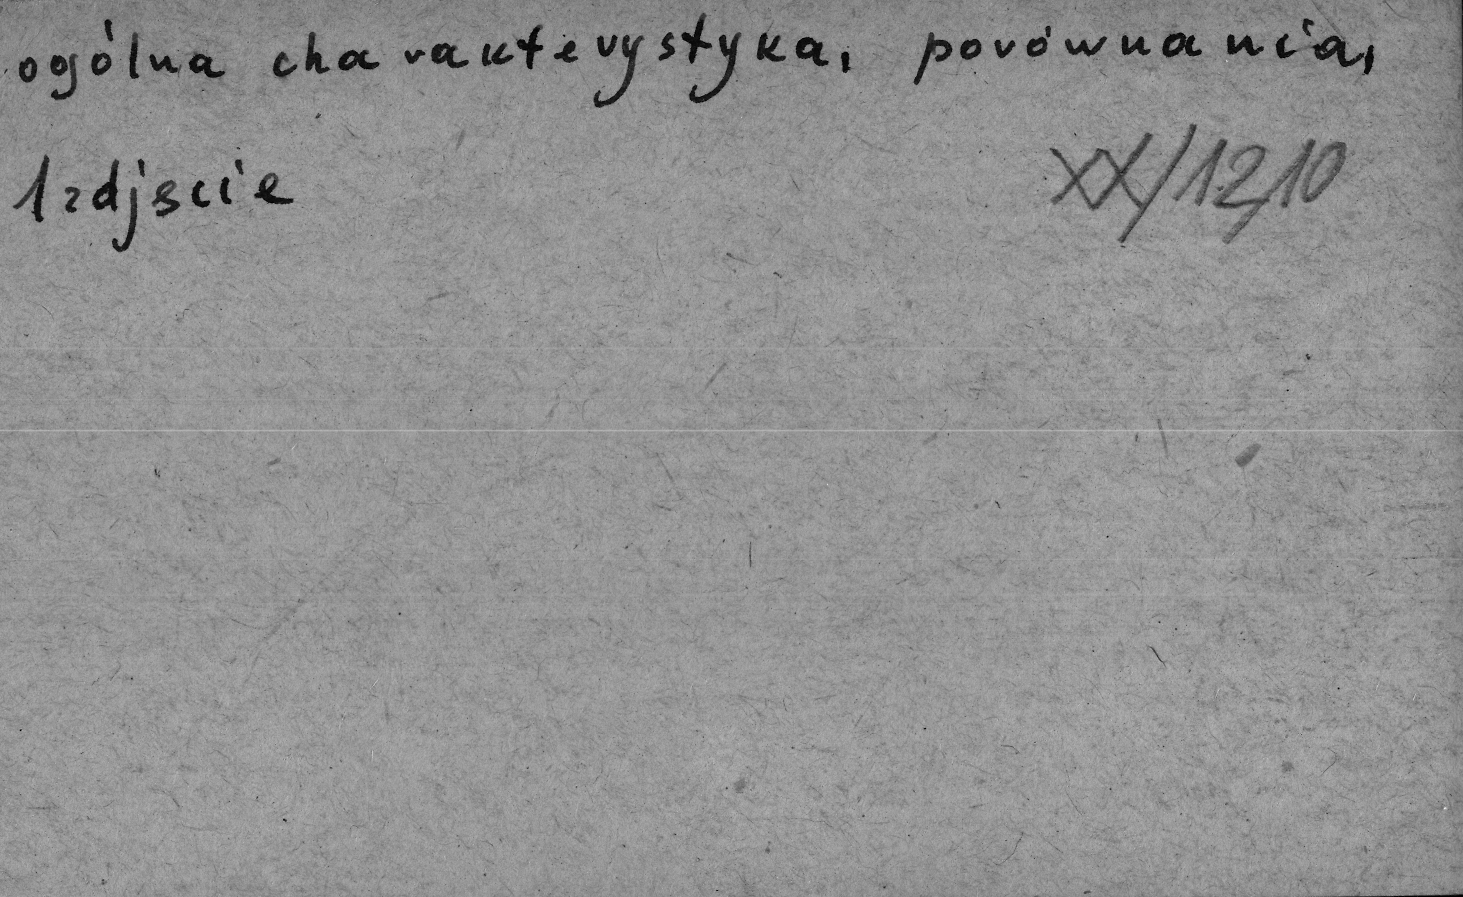 ogólna charakterystyka, porównania,
1 zdjscie XX/12,10